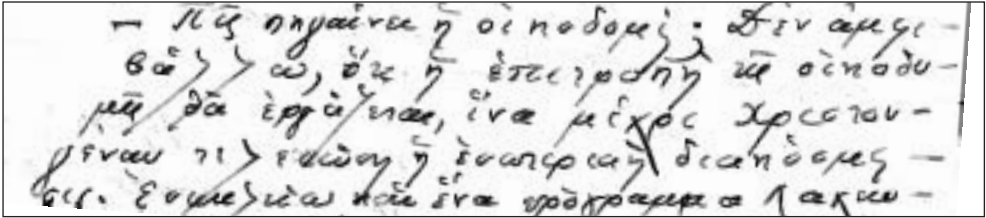 – Πῶς πηγαίνει ἡ οἰκοδομή; Δὲν ἀμφι-
βάλλω, ὅτι ἡ ἐπιτροπὴ τῆς οἰκοδο-
μῆς θὰ ἐργάζεται, ἵνα μέχρις Χριστου-
γέννων τελειώσῃ ἡ ἐσωτερικὴ διακόσμη-
σις. καὶ ἕνα πρόγραμμα